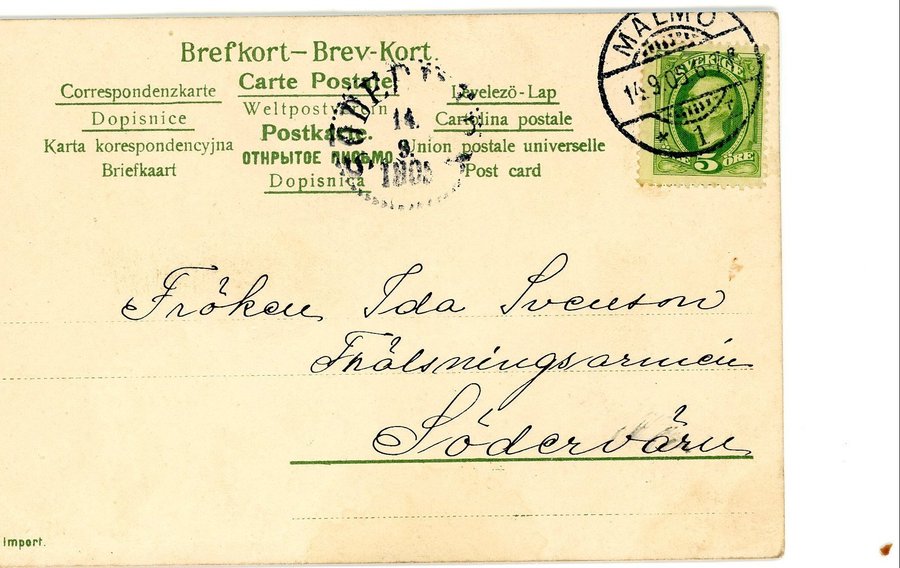 Brefkort—Brev-Kort.
Carte Postale
Correspondenzkarte
Weltpostverein
Levelezö-Lap
Dopisnice
Postkarte.
Cartolina postale
Karta korespondencyjna
ОТКРЫТОЕ ПИСЬМО
Union postale universelle
Briefkaart
Dopisnica
Post card
14.
9.
1905
MALMÖ
14.9.05
1
SVERIGE
5 ÖRE
Fröken Ida Svenson
Frälsningsarméen
Södervärn
Import.